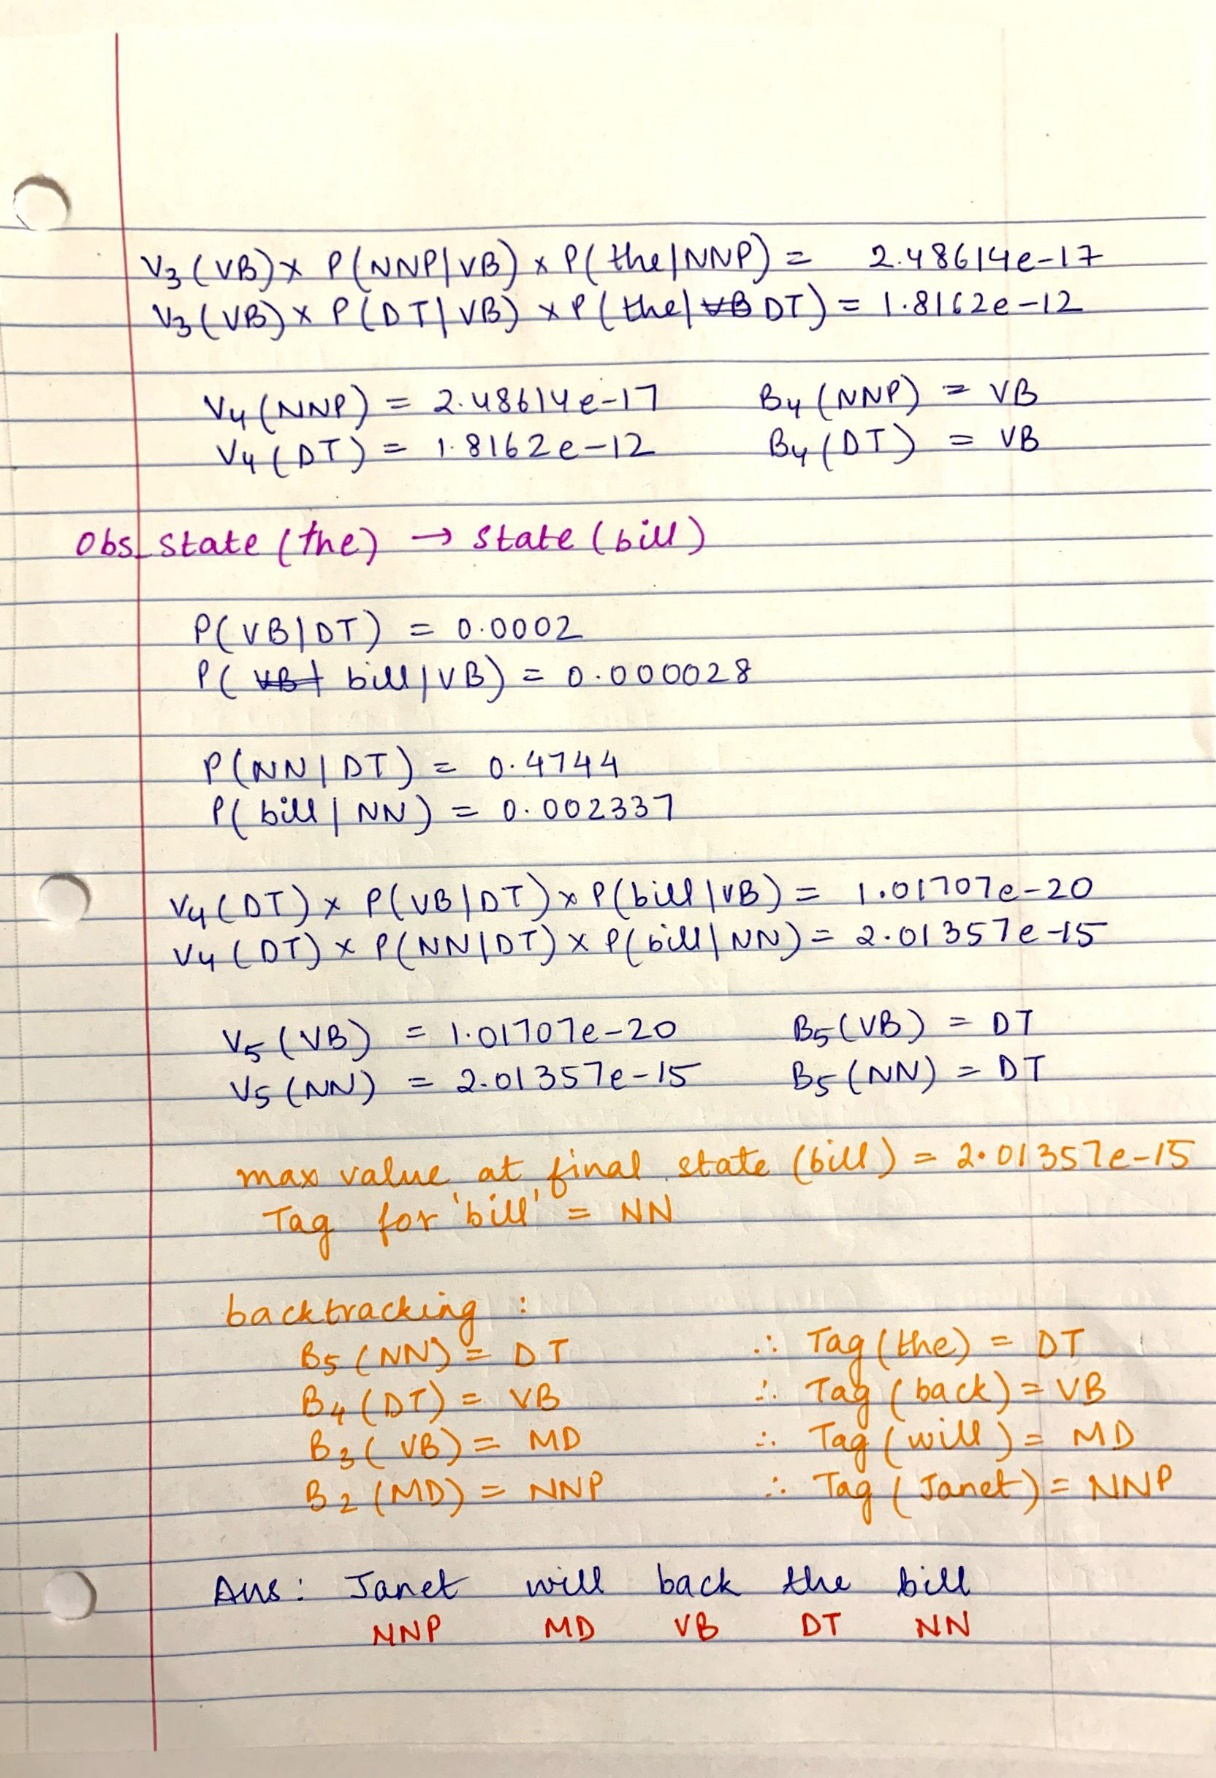 V3 (VB) x P(NNP|VB) x P(the|NNP) = 2.48614e-17
V3 (VB) x P(DT|VB) x P(the|VB DT) = 1.8162e-12
V4 (NNP) = 2.48614e-17 B4 (NNP) = VB
V4 (DT) = 1.8162e-12 B4 (DT) = VB
Obs state (the) → state (bill)
P(VB|DT) = 0.0002
P(VB| bill|VB) = 0.000028
P(NN|DT) = 0.4744
P(bill|NN) = 0.002337
V4 (DT) x P(VB|DT) x P(bill|VB) = 1.01707e-20
V4 (DT) x P(NN|DT) x P(bill|NN) = 2.01357e-15
V5 (VB) = 1.01707e-20 B5 (VB) = DT
V5 (NN) = 2.01357e-15 B5 (NN) = DT
max value at final state (bill) = 2.01357e-15
Tag for 'bill' = NN
backtracking :
B5 (NN) = DT ∴ Tag (the) = DT
B4 (DT) = VB ∴ Tag (back) = VB
B3 (VB) = MD ∴ Tag (will) = MD
B2 (MD) = NNP ∴ Tag (Janet) = NNP
Ans: Janet will back the bill
NNP MD VB DT NN